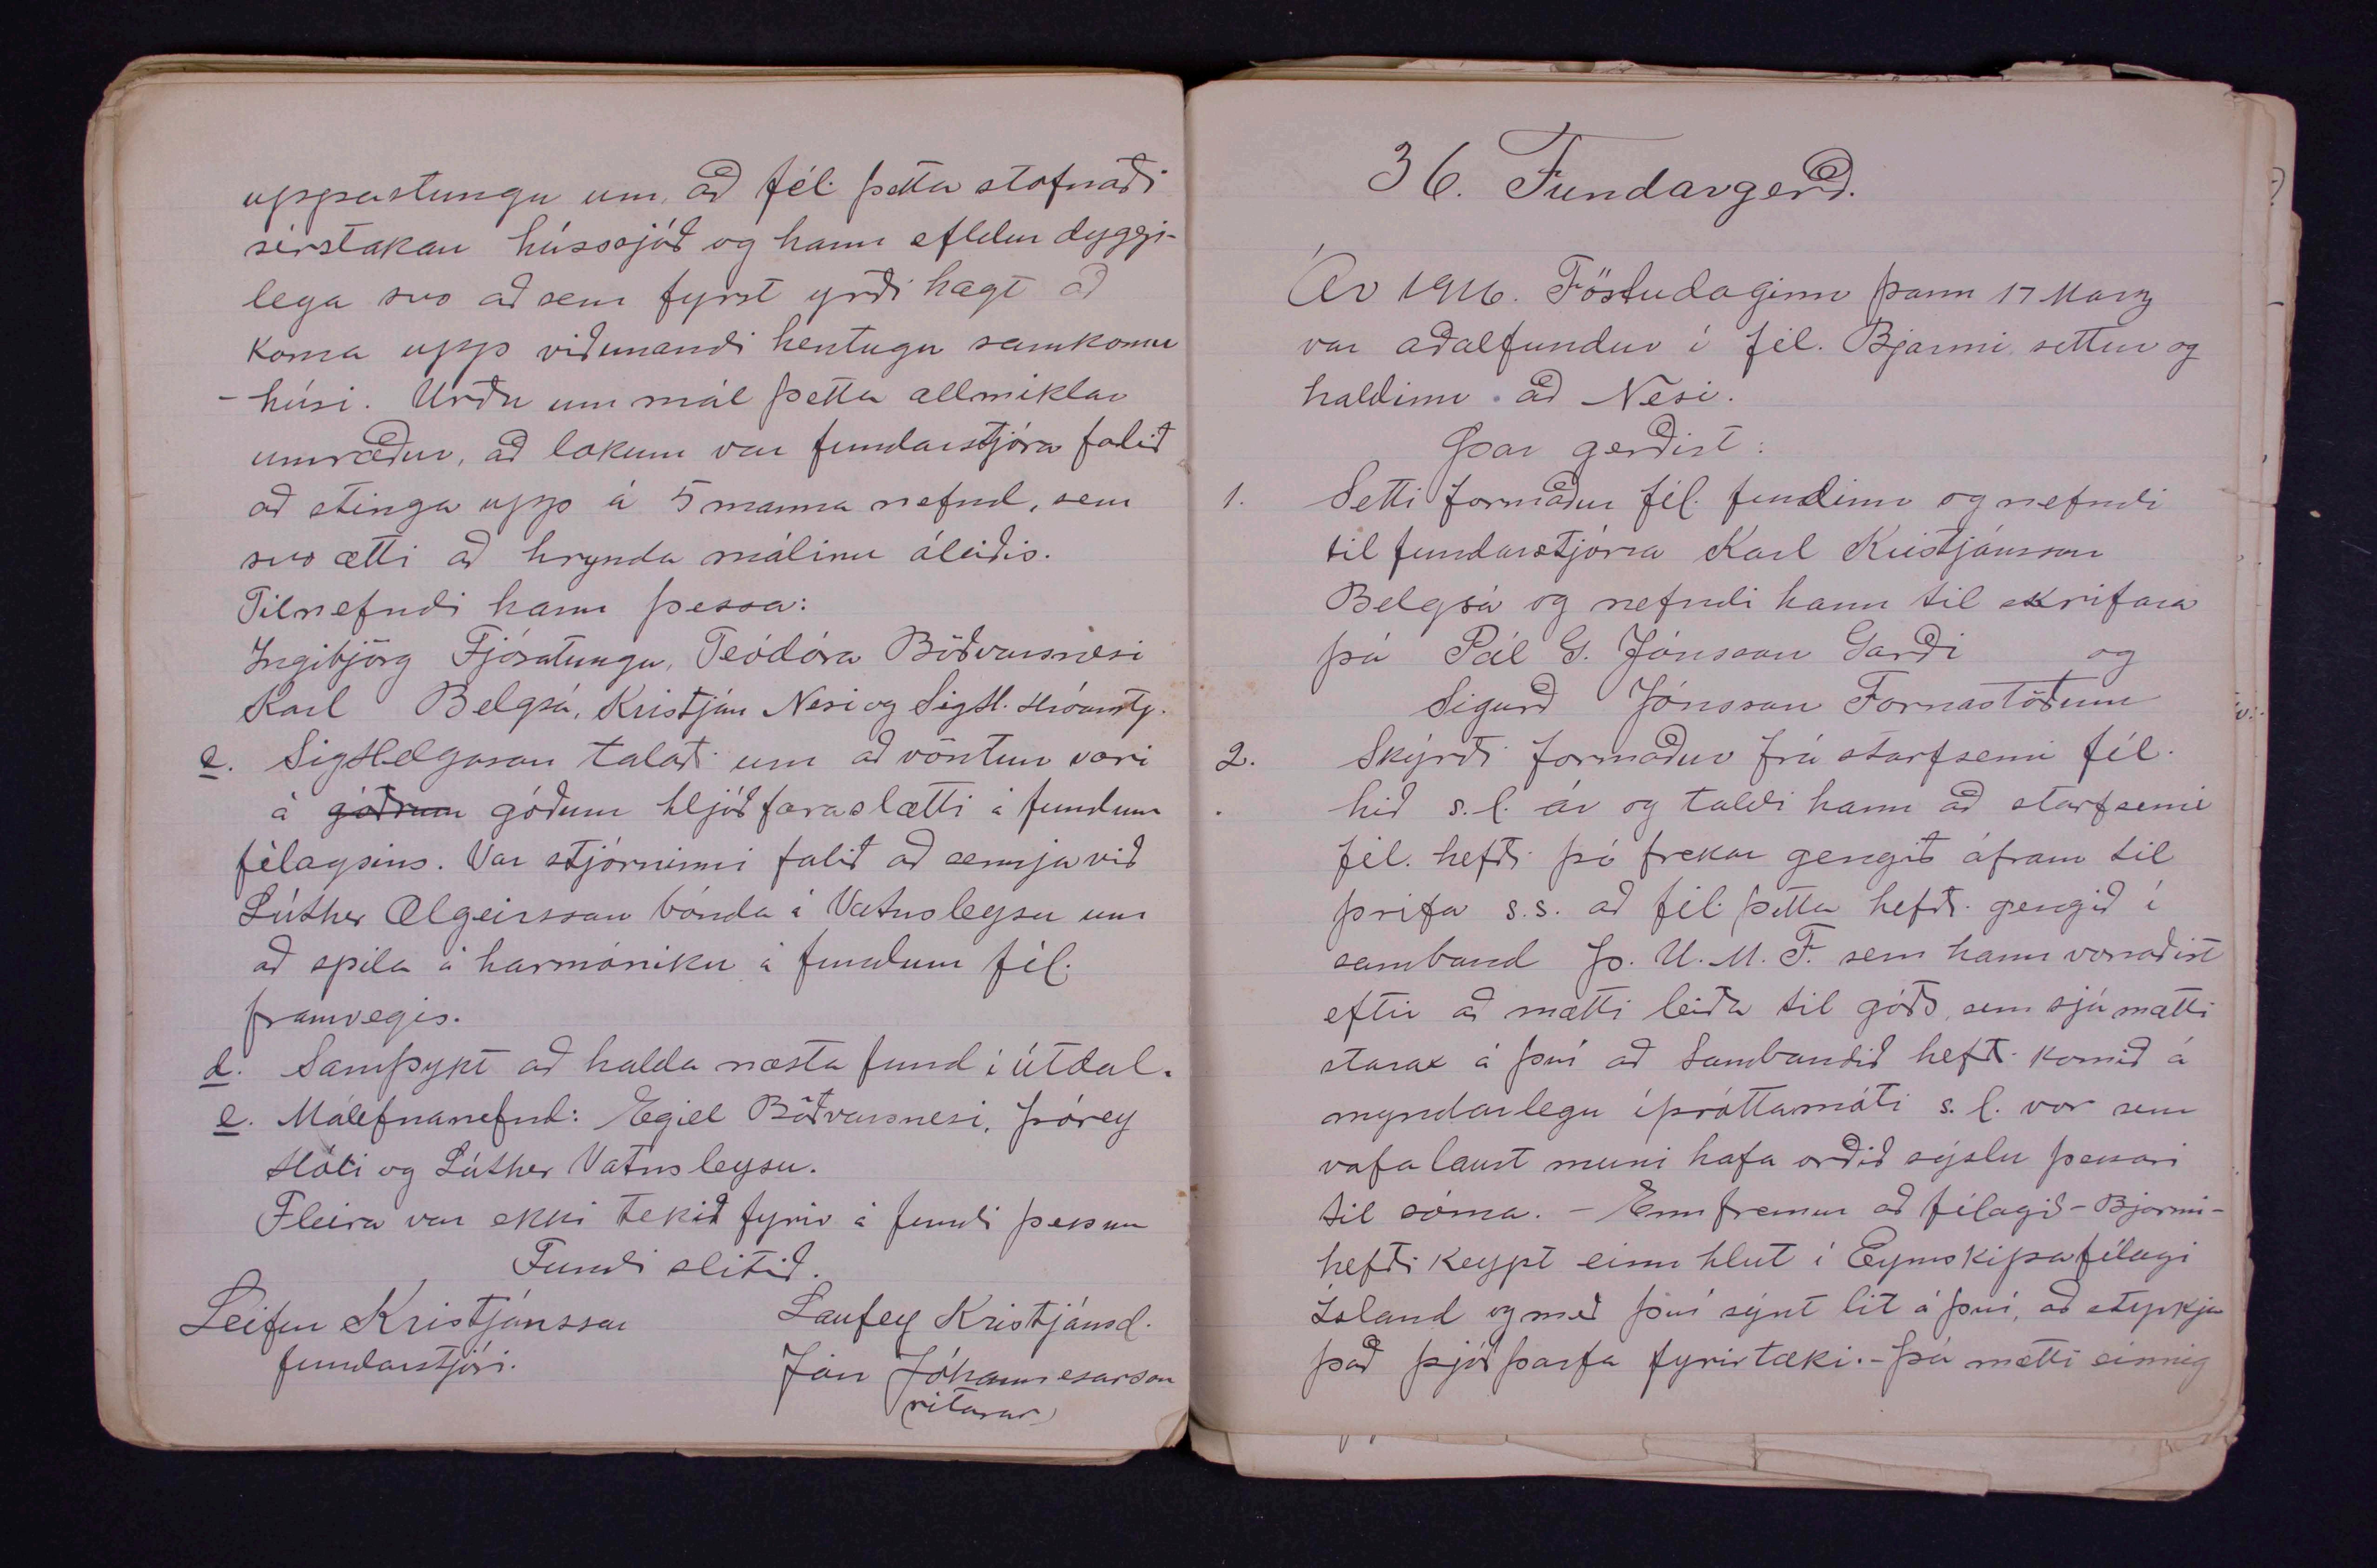 uppástungu um, að fél. þetta stofnaði
sérstakan hússjóð og hann efldur dyggi-
lega svo að sem fyrst yrði hægt að
koma upp viðunandi hentugu samkomu
-húsi. Urðu um mál þetta allmiklar
umræður, að lokum var fundarstjóra falið
að stinga upp á 5 manna nefnd, sem
svo ætti að hrynda málinu áleiðis.
Tilnefndi hann þessa:
Ingibjörg Fjósatungu, Teódóra Böðvarsnesi
Karl Belgsá, Kristján Nesi og Sig H. Hróarstg.
c. Sig Helgason talaði um að vöntun væri
á góðrum góðum hljóðfæraslætti á fundum
félagsins. Var stjórninni falið að semja við
Lúther Olgeirsson bónda á Vatnsleysu um
að spila á harmóniku á fundum fél.
framvegis.
d. Samþykt að halda næsta fund í útdal.
e. Málefnanefnd: Egill Böðvarsnesi, Þórey
Hóli og Lúther Vatnsleysu.
Fleira var ekki tekið fyrir á fundi þessum
Fundi slitið.
Leifur Kristjánsson
fundarstjóri.
Laufey Kristjánsd.
Jón Jóhannesarson
(ritarar)
36. Fundargerð.
Ár 1916. Föstudaginn þann 17 Marz
var aðalfundur í fél. Bjarmi settur og
haldinn að Nesi.
Þar gerðist:
1. Setti formaður fél. fundinn og nefndi
til fundarstjóra Karl Kristjánsson
Belgsá og nefndi hann til skrifara
þá Pál G. Jónsson Garði og
Sigurð Jónsson Fornastöðum
2. Skýrði formaður frá starfsemi fél.
hið s.l. ár og taldi hann að starfsemi
fél. hefði þó frekar gengið áfram til
þrifa s.s. að fél. þetta hefði gengið í
samband Þ. U. M. F. sem hann vonaðist
eftir að mætti leiða til góðs, sem sjá mætti
starax á því að Sambandið hefði komið á
myndarlegu íþróttamóti s.l. vor sem
vafalaust muni hafa orðið sýslu þessari
til sóma. - Enn fremur að félagið - Bjarmi -
hefði keypt einn hlut í Eymskipafélagi
Ísland og með því sýnt lit á því, að styrkja
það þjóðþarfa fyrirtæki. - Þá mætti einnig